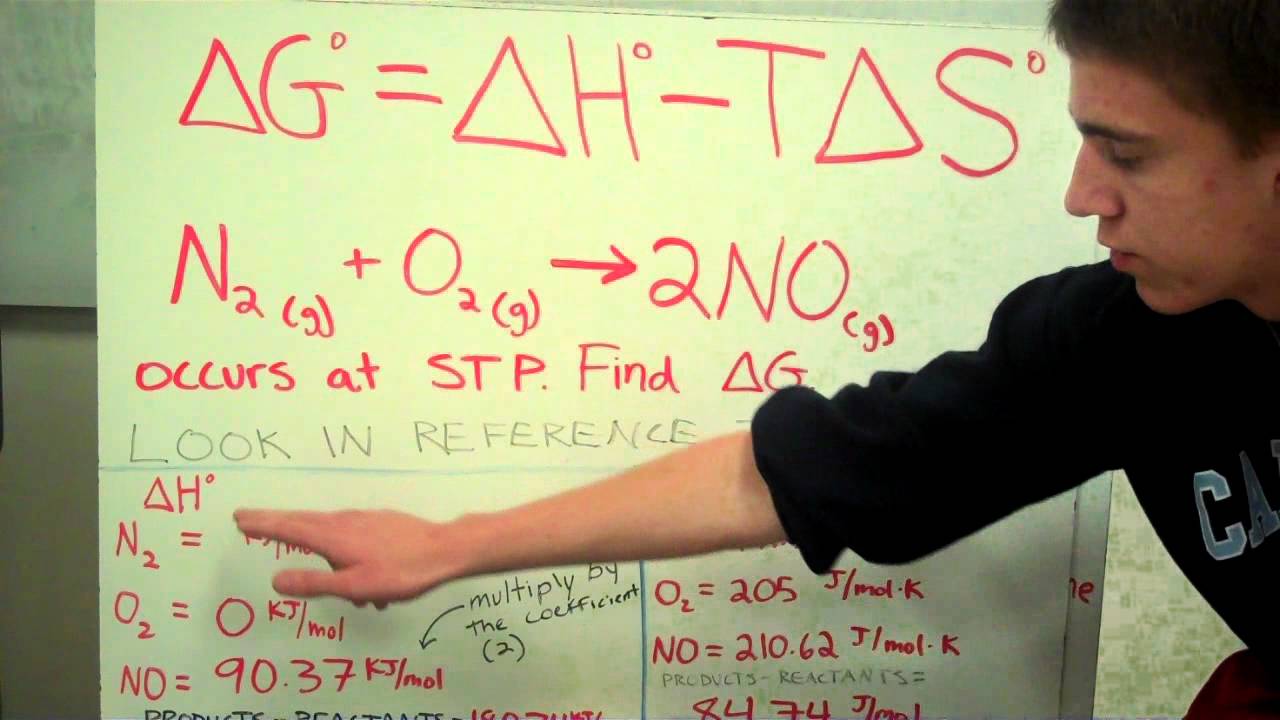 ΔG° = ΔH° − TΔS°
N₂(g) + O₂(g) → 2NO(g)
occurs at STP. Find ΔG
LOOK IN REFERENCE
ΔH°
N₂ =
O₂ = 0 KJ/mol
NO = 90.37 KJ/mol
multiply by
the coefficient
(2)
PRODUCTS - REACTANTS =
O₂ = 205 J/mol·K
NO = 210.62 J/mol·K
PRODUCTS - REACTANTS =
84.74 J/mol
CA